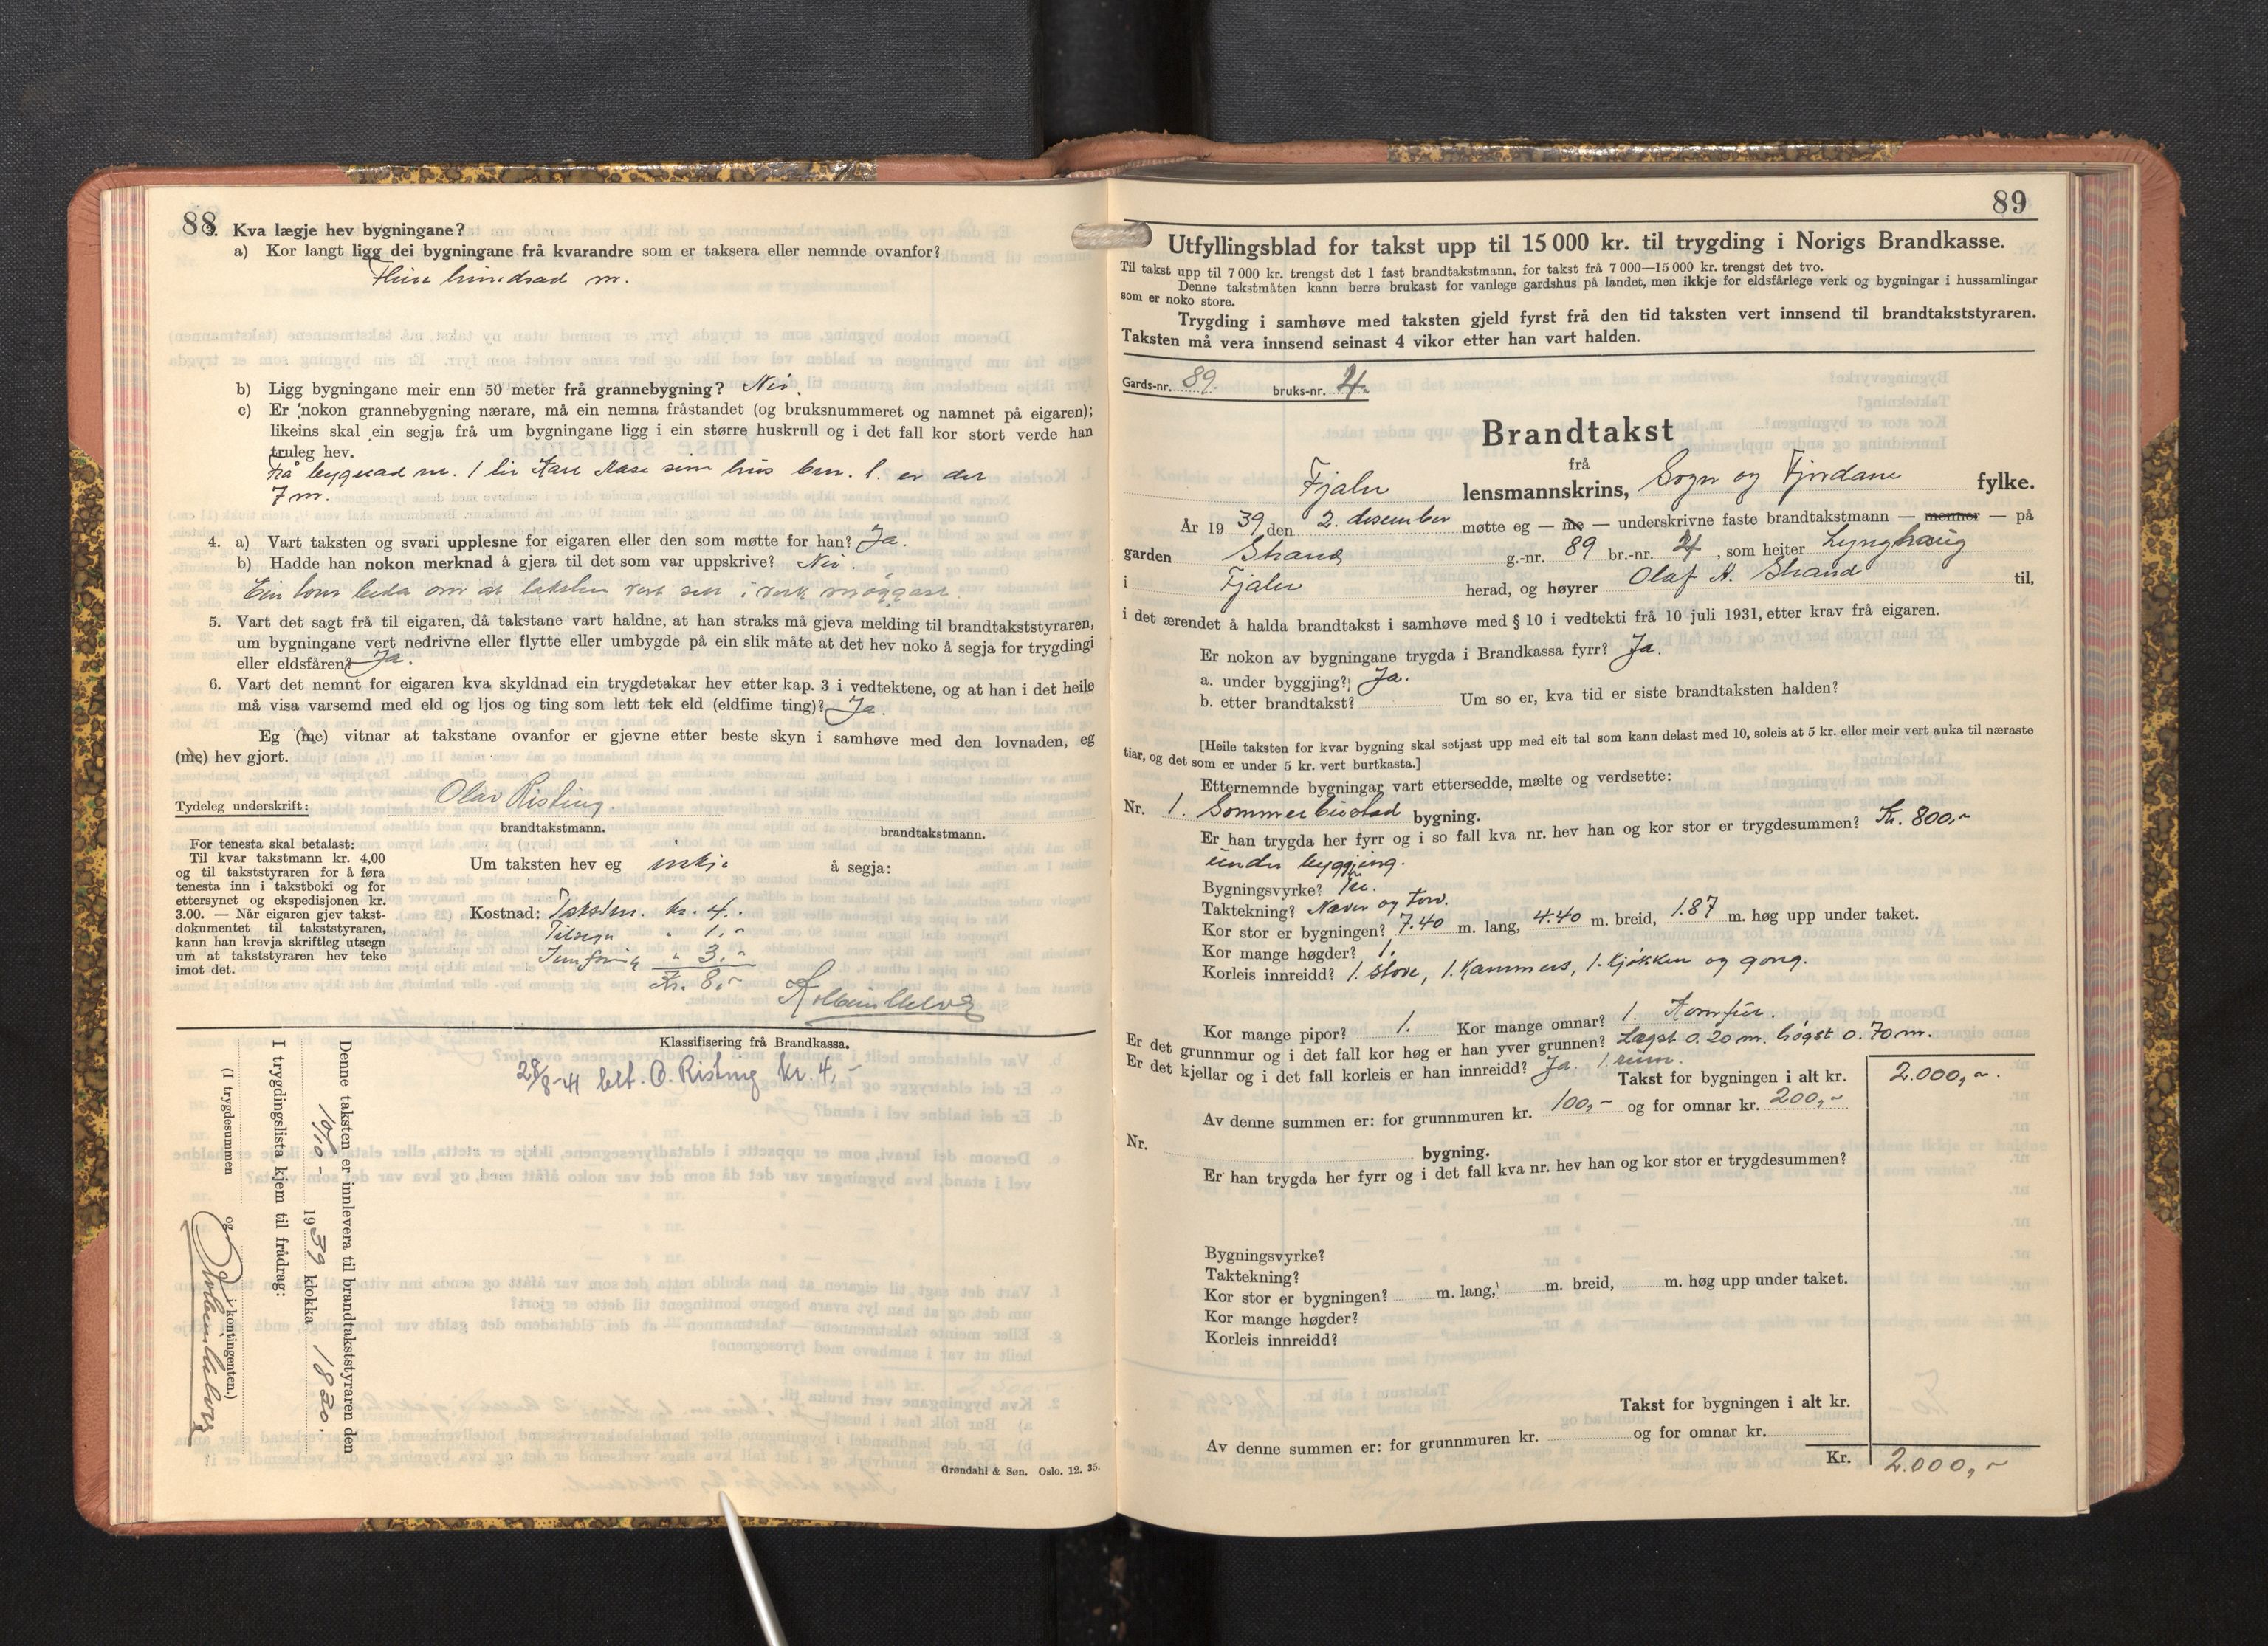 88
3. Kva lægje hev bygningane?
a) Kor langt ligg dei bygningane frå kvarandre som er taksera eller nemnde ovanfor?
Fleire hundrad m.
b) Ligg bygningane meir enn 50 meter frå grannebygning? Nei.
c) Er nokon grannebygning nærare, må ein nemna fråstandet (og bruksnummeret og namnet på eigaren);
likeins skal ein segja frå um bygningane ligg i ein større huskrull og i det fall kor stort verde han
truleg hev.
Frå bygnad nr. 1 til Kari Aase sine hus bnr. 1. er der
7 m.
4. a) Vart taksten og svari upplesne for eigaren eller den som møtte for han? Ja.
b) Hadde han nokon merknad å gjera til det som var uppskrive? Nei.
Ein tour beda om at taksten vert sett i verk
5. Vart det sagt frå til eigaren, då takstane vart haldne, at han straks må gjeva melding til brandtakststyraren,
um bygningane vert nedrivne eller flytte eller umbygde på ein slik måte at det hev noko å segja for trygdingi
eller eldsfåren? Ja.
6. Vart det nemnt for eigaren kva skyldnad ein trygdetakar hev etter kap. 3 i vedtektene, og at han i det heile
må visa varsemd med eld og ljos og ting som lett tek eld (eldfime ting)? Ja.
Eg (me) vitnar at takstane ovanfor er gjevne etter beste skyn i samhøve med den lovnaden, eg
(me) hev gjort.
Tydeleg underskrift: Olav Risting.
brandtakstmann. brandtakstmann.
For tenesta skal betalast:
Til kvar takstmann kr. 4,00
og til takststyraren for å føra
tenesta inn i takstboki og for
ettersynet og ekspedisjonen kr.
3.00. — Når eigaren gjev takst-
dokumentet til takststyraren,
kann han krevja skriftleg utsegn
um at takststyraren hev teke
imot det.
Um taksten hev eg inkje å segja:
Kostnad: Taksten. kr. 4.-
Tilsegn " 1,-
Innføring " 3,-
Kr. 8,-
Klassifisering frå Brandkassa.
28/8-41 bet. O. Risting kr. 4,-
Denne taksten er innlevera til brandtakststyraren den
10/10 - 1939 klokka 18 20.
I trygdingslista kjem til frådrag:
(I trygdesummen og i kontingenten.)
Grøndahl & Søn. Oslo. 12. 35.
89
Utfyllingsblad for takst upp til 15 000 kr. til trygding i Norigs Brandkasse.
Til takst upp til 7 000 kr. trengst det 1 fast brandtakstmann, for takst frå 7 000—15 000 kr. trengst det tvo.
Denne takstmåten kann berre brukast for vanlege gardshus på landet, men ikkje for eldsfårlege verk og bygningar i hussamlingar
som er noko store.
Trygding i samhøve med taksten gjeld fyrst frå den tid taksten vert innsend til brandtakststyraren.
Taksten må vera innsend seinast 4 vikor etter han vart halden.
Gards-nr. 89. bruks-nr. 4.
Brandtakst
frå
Fjaler lensmannskrins, Sogn og Fjordane fylke.
År 1939 den 2. desember møtte eg — me — underskrivne faste brandtakstmann — menner — på
garden Strand g.-nr. 89 br.-nr. 4, som heiter Lynghaug
i Fjaler herad, og høyrer Olaf A. Strand til,
i det ærendet å halda brandtakst i samhøve med § 10 i vedtekti frå 10 juli 1931, etter krav frå eigaren.
Er nokon av bygningane trygda i Brandkassa fyrr? Ja.
a. under byggjing? Ja.
b. etter brandtakst? Um so er, kva tid er siste brandtaksten halden?
[Heile taksten for kvar bygning skal setjast upp med eit tal som kann delast med 10, soleis at 5 kr. eller meir vert auka til næraste
tiar, og det som er under 5 kr. vert burtkasta.]
Etternemnde bygningar vart ettersedde, mælte og verdsette:
Nr. 1. Sommerbustad bygning.
Er han trygda her fyrr og i so fall kva nr. hev han og kor stor er trygdesummen? Kr. 800,-
under byggjing.
Bygningsvyrke? Tre.
Taktekning? Næver og torv.
Kor stor er bygningen? 7.40 m. lang, 4.40 m. breid, 1.87 m. høg upp under taket.
Kor mange høgder? 1.
Korleis innreidd? 1. stove, 1. kammers, 1. kjøkken og gong.
Kor mange pipor? 1. Kor mange omnar? 1. Komfür.
Er det grunnmur og i det fall kor høg er han yver grunnen? Lægst 0.20 m. høgst 0.70 m.
Er det kjellar og i det fall korleis er han innreidd? Ja. 1 rum.
Takst for bygningen i alt kr. 2.000,-.
Av denne summen er: for grunnmuren kr. 100,- og for omnar kr. 200,-
Nr. bygning.
Er han trygda her fyrr og i det fall kva nr. hev han og kor stor er trygdesummen?
Bygningsvyrke?
Taktekning?
Kor stor er bygningen? m. lang, m. breid, m. høg upp under taket.
Kor mange høgder?
Korleis innreidd?
Takst for bygningen i alt kr.
Av denne summen er: for grunnmuren kr. og for omnar kr.
Kr. 2.000,-